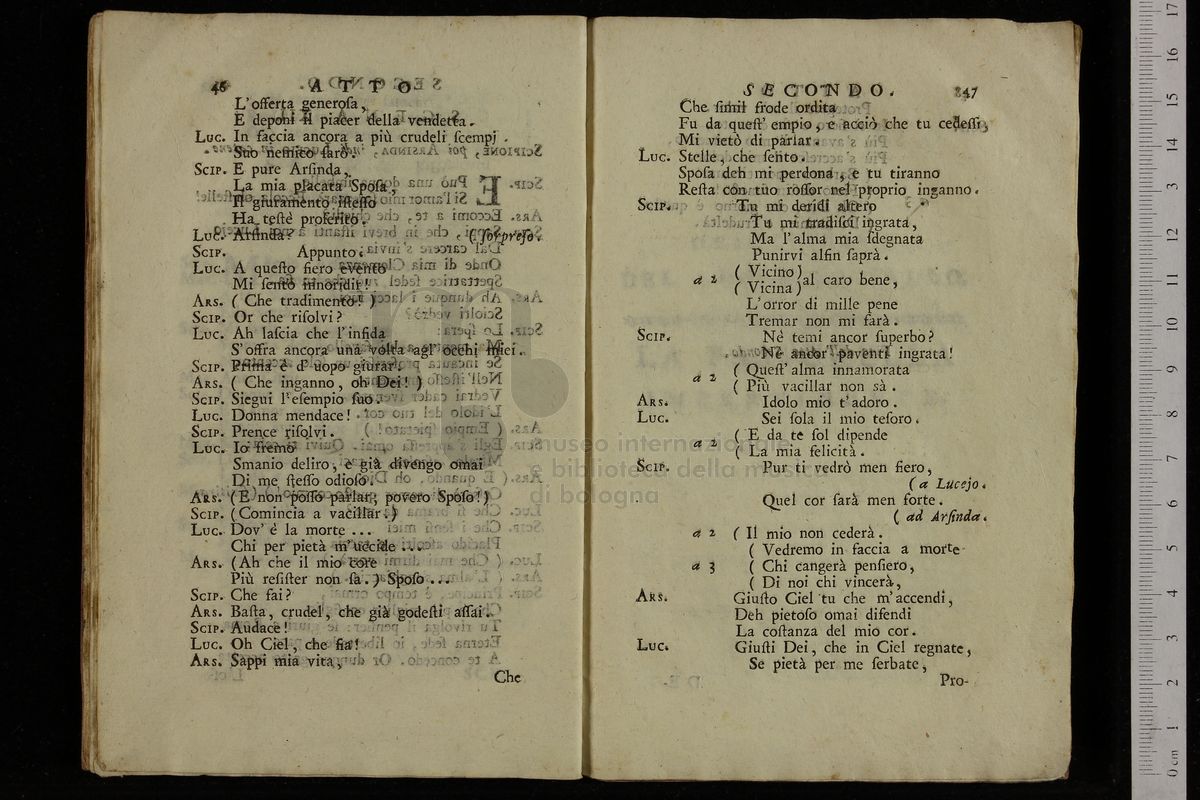 46 ATTO
L'offerta generoſa,
E deponi il piacer della vendetta.
Luc. In faccia ancora a più crudeli ſcempj
Suo nemico ſarò.
Scip. E pure Arſinda,
La mia placata Spoſa,
Il giuramento iſteſſo
Ha teſtè proferito.
Luc. Arſinda? (ſorpreſo.
Scip. Appunto:
Luc. A queſto fiero evento
Mi ſento innoridir!
Ars. ( Che tradimento! )
Scip. Or che riſolvi?
Luc. Ah laſcia che l'infida
S'offra ancora una volta agl' occhi miei.
Scip. Prima è d' uopo giurar.
Ars. ( Che inganno, oh Dei! )
Scip. Siegui l'eſempio ſuo.
Luc. Donna mendace!
Scip. Prence riſolvi.
Luc. Io fremo
Smanio deliro, e già divengo omai
Di me ſteſſo odioſo.
Ars. (E non poſſo parlar; povero Spoſo!)
Scip. (Comincia a vacillar.)
Luc. Dov' è la morte ...
Chi per pietà m'uccide ...
Ars. (Ah che il mio core
Più reſiſter non ſa.) Spoſo ...
Scip. Che fai?
Ars. Baſta, crudel, che già godeſti aſſai.
Scip. Audace!
Luc. Oh Ciel, che fia!
Ars. Sappi mia vita,
Che
SECONDO. 47
Che ſimil frode ordita
Fu da queſt' empio, e acciò che tu cedeſſi,
Mi vietò di parlar.
Luc. Stelle, che ſento.
Spoſa deh mi perdona, e tu tiranno
Reſta con tuo roſſor nel proprio inganno.
Scip. Tu mi deridi altero
Tu mi tradiſci ingrata,
Ma l'alma mia ſdegnata
Punirvi alfin ſaprà.
a 2 ( Vicino) al caro bene,
( Vicina)
L'orror di mille pene
Tremar non mi farà.
Scip. Nè temi ancor ſuperbo?
Nè ancor paventi ingrata!
a 2 ( Queſt' alma innamorata
( Più vacillar non sà.
Ars. Idolo mio t'adoro.
Luc. Sei ſola il mio teſoro.
a 2 ( E da te ſol dipende
( La mia felicità.
Scip. Pur ti vedrò men fiero,
(a Lucejo.
Quel cor ſarà men forte.
( ad Arſinda.
a 2 ( Il mio non cederà.
( Vedremo in faccia a morte
a 3 ( Chi cangerà penſiero,
( Di noi chi vincerà,
Ars. Giuſto Ciel tu che m'accendi,
Deh pietoſo omai difendi
La coſtanza del mio cor.
Luc. Giuſti Dei, che in Ciel regnate,
Se pietà per me ſerbate,
Pro-
museo internazionale
e biblioteca della musica
di bologna
0 cm 1 2 3 4 5 6 7 8 9 10 11 12 13 14 15 16 17